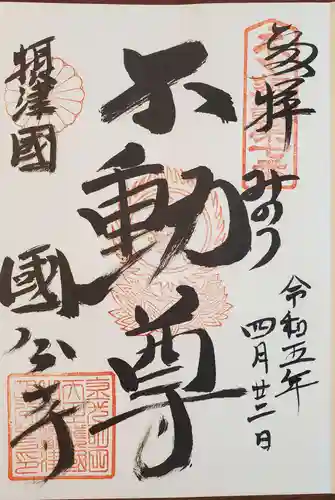 奉拝
みのり
令和五年
四月廿二日
不動尊
摂津國
國公寺